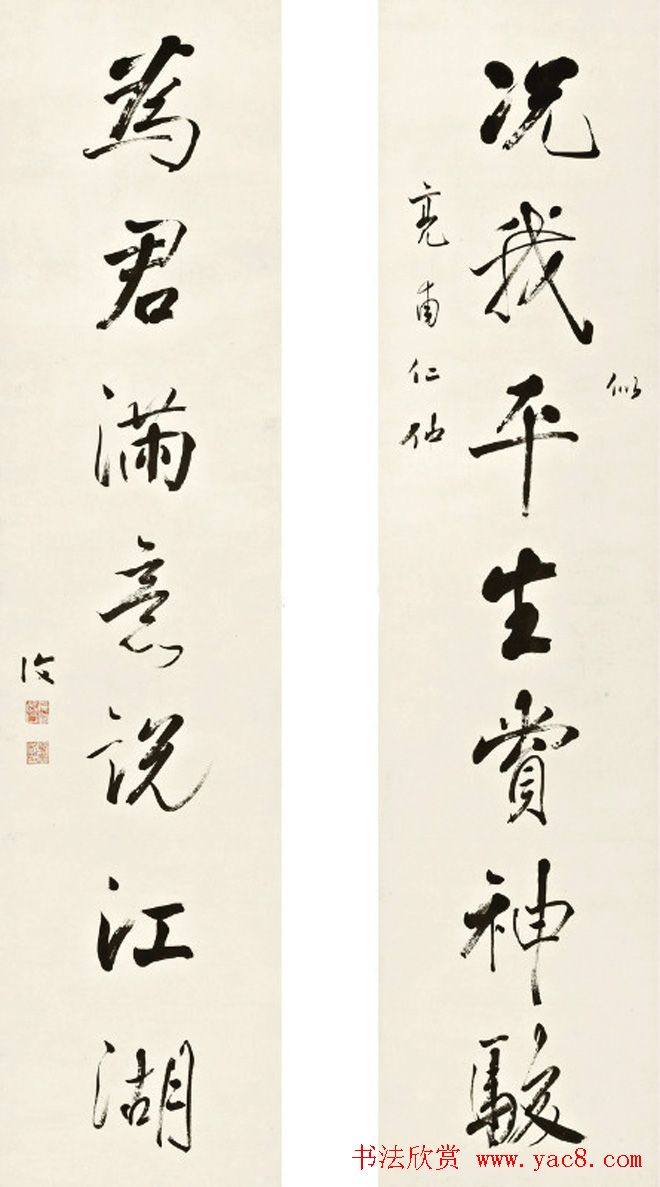 况我平生賞神駿
似
亮甫仁
為君滿意説江湖
书法欣赏 www.yac8.com